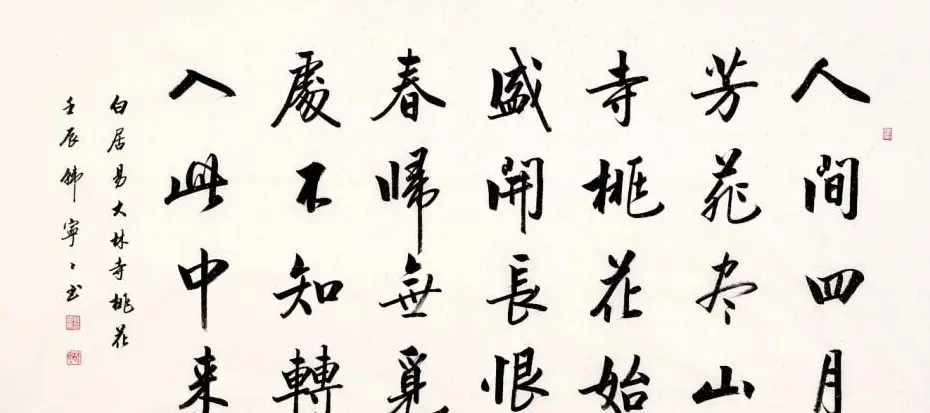 人間四月
芳菲尽山
寺桃花始
盛開長恨
春歸無覓
處不知轉
入此中来
白居易大林寺桃花
壬辰寧〻书